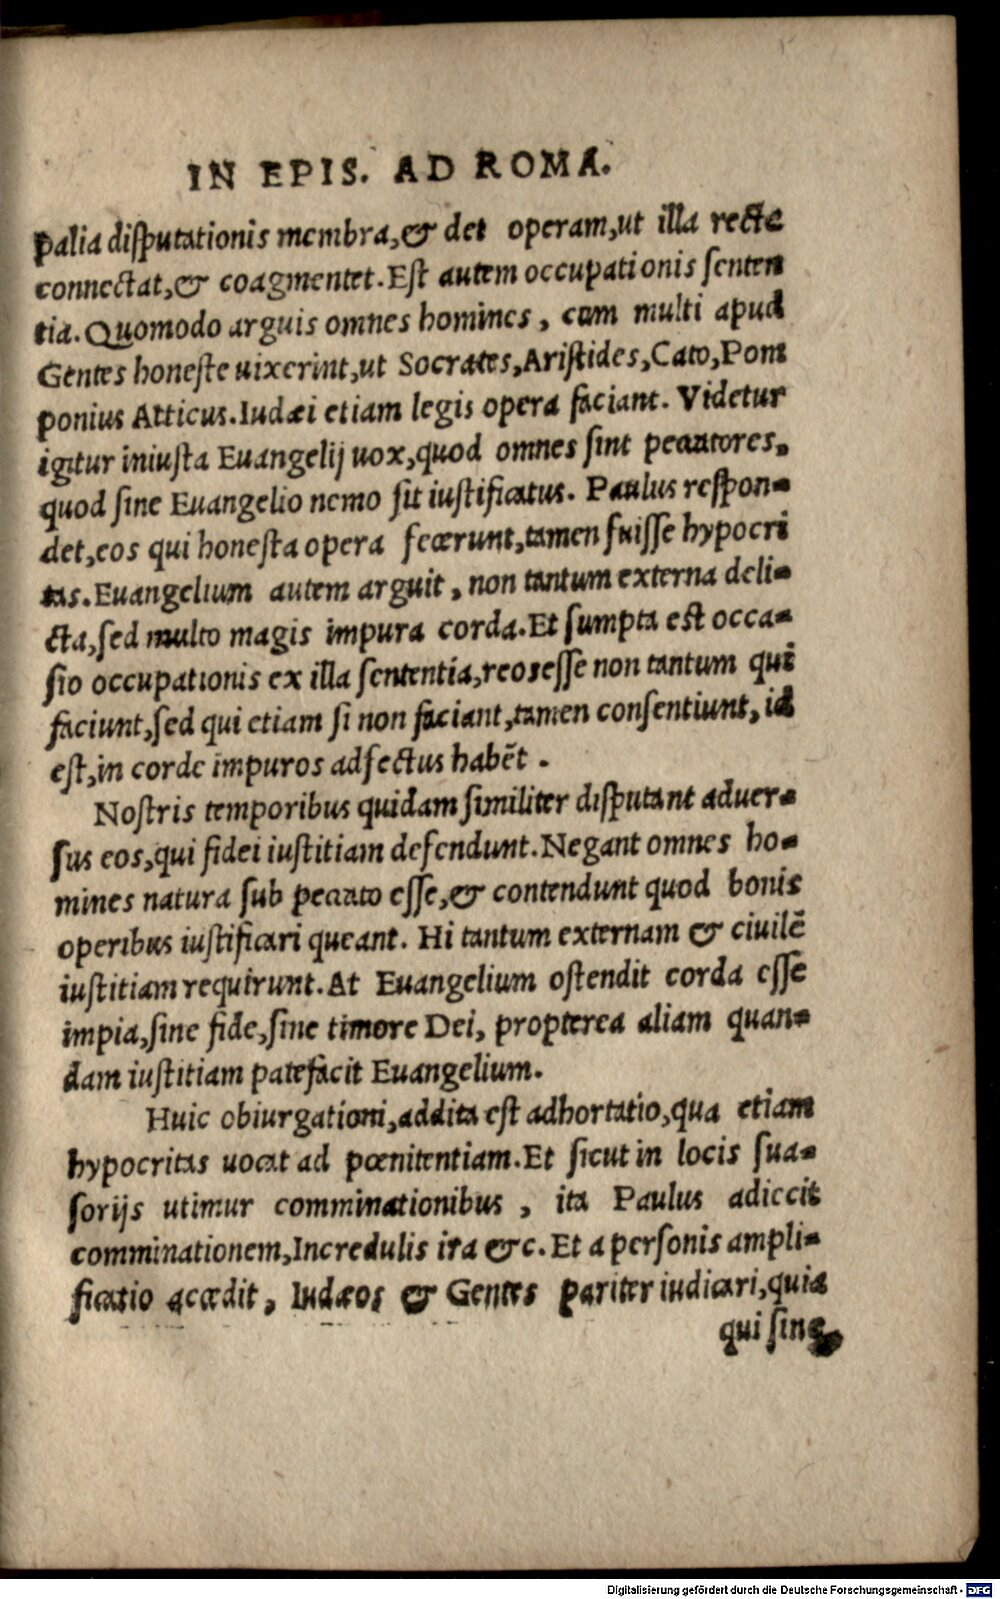 IN EPIS. AD ROMA.
palia diſputationis membra,& det operam,ut illa recte
connectat,& coagmentet.Eſt autem occupationis ſenten
tia.Quomodo arguis omnes homines, cum multi apud
Gentes honeſte uixerint,ut Socrates,Ariſtides,Cato,Pom
ponius Atticus.Iudæi etiam legis opera faciant. Videtur
igitur iniuſta Euangelij uox,quod omnes ſint peccatores,
quod ſine Euangelio nemo ſit iuſtificatus. Paulus reſpon-
det,eos qui honeſta opera fecerunt,tamen fuiſſe hypocri
tas.Euangelium autem arguit, non tantum externa deli-
cta,ſed multo magis impura corda.Et ſumpta eſt occa-
ſio occupationis ex illa ſententia,reos eſſe non tantum qui
faciunt,ſed qui etiam ſi non faciant,tamen conſentiunt, id
eſt,in corde impuros adfectus habẽt.
Noſtris temporibus quidam ſimiliter diſputant aduer-
ſus eos,qui fidei iuſtitiam defendunt.Negant omnes ho-
mines natura ſub peccato eſſe,& contendunt quod bonis
operibus iuſtificari queant. Hi tantum externam & ciuilẽ
iuſtitiam requirunt.At Euangelium oſtendit corda eſſe
impia,ſine fide,ſine timore Dei, propterea aliam quan-
dam iuſtitiam patefacit Euangelium.
Huic obiurgationi,addita eſt adhortatio,qua etiam
hypocritas uocat ad pœnitentiam.Et ſicut in locis ſua-
ſorijs utimur comminationibus, ita Paulus adiecit
comminationem,Incredulis ira &c.Et a perſonis ampli-
ficatio accedit, Iudæos & Gentes pariter iudicari,quia
qui ſine
Digitalisierung gefördert durch die Deutsche Forschungsgemeinschaft - DFG